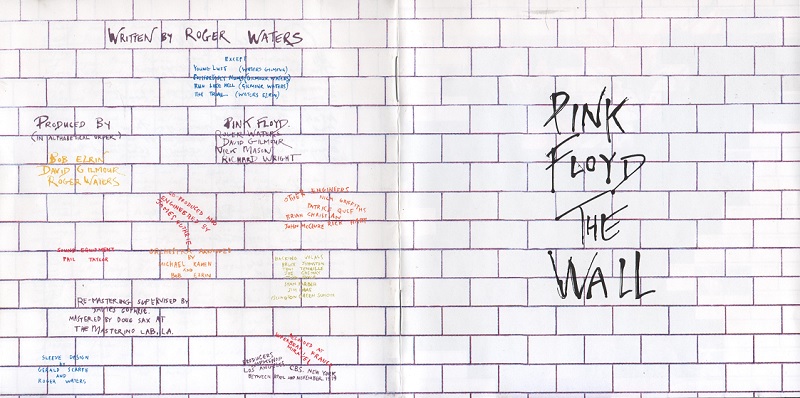 WRITTEN BY ROGER WATERS
EXCEPT
YOUNG LUST (WATERS GILMOUR)
COMFORTABLY NUMB (GILMOUR WATERS)
RUN LIKE HELL (GILMOUR WATERS)
THE TRIAL (WATERS EZRIN)
PRODUCED BY
(IN ALPHABETICAL ORDER)
BOB EZRIN
DAVID GILMOUR
ROGER WATERS
PINK FLOYD.
ROGER WATERS
DAVID GILMOUR
NICK MASON
RICHARD WRIGHT
CO PRODUCED AND
ENGINEERED BY
JAMES GUTHRIE
OTHER ENGINEERS
NICK GRIFFITHS
PATRICE QUEF
BRIAN CHRISTIAN
JOHN McCLURE RICK HART
SOUND EQUIPMENT
PHIL TAYLOR
ORCHESTRA ARRANGED
BY
MICHAEL KAMEN
AND
BOB EZRIN
BACKING VOCALS
BRUCE JOHNSTON
TONI TENNILLE
JOE CHEMAY
JOHN JOYCE
JIM HAAS
ISLINGTON GREEN SCHOOL
RE-MASTERING SUPERVISED BY
JAMES GUTHRIE.
MASTERED BY DOUG SAX AT
THE MASTERING LAB, L.A.
SLEEVE DESIGN
BY
GERALD SCARFE
AND
ROGER WATERS
RECORDED AT
SUPERBEAR, FRANCE
MIRAVAL
PRODUCERS WORKSHOP
LOS ANGELES CBS. NEW YORK
BETWEEN APRIL AND NOVEMBER 1979
PINK
FLOYD
THE
WALL